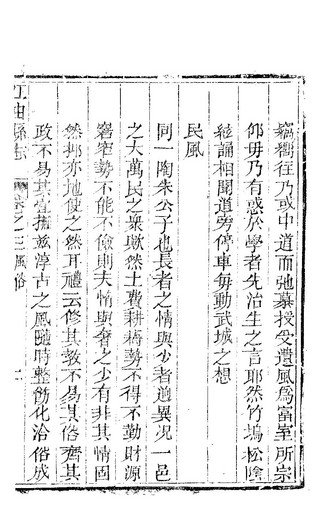 竊嚮往乃或中道而弛慕授受遺風爲富室所宗
仰毋乃有惑於學者先治生之言耶然竹塢松陰
絃誦相聞道旁停車每動武城之想
民風
同一陶朱公子也長者之情與少者逈異况一邑
之大萬民之衆歟然土費耕耨勢不得不勤財源
窘窄勢不能不儉則夫惰與奢之少有非其情固
然抑亦地使之然耳禮云修其敎不易其俗齊其
政不易其宜撫兹淳古之風隨時整飭化洽俗成
江油縣志 卷之三風俗 二